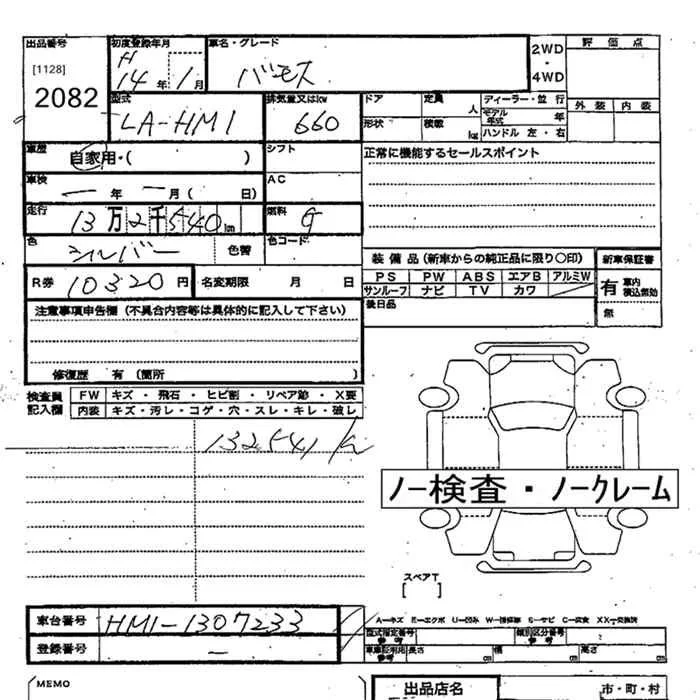 出品番号
[1128]
2082
初度登録年月
H
14年 1月
車名・グレード
バモス
2WD
・
4WD
評価点
外装 内装
型式
LA-HM1
排気量又はkw
660
ドア
形状
定員 人
積載 kg
ディーラー・並行
モデル年式 年
ハンドル 左・右
車歴
自家用・( )
シフト
正常に機能するセールスポイント
車検
ー年 ー月( 日)
AC
走行
13万2千540km
燃料
G
色
シルバー
色替
色コード
R券 10320円
名変期限 月 日
装備品(新車からの純正品に限り〇印)
新車保証書
PS PW ABS エアB アルミW
サンルーフ ナビ TV カワ
有 車内積込有効
無
後日品
注意事項申告欄(不具合内容等は具体的に記入して下さい)
修復歴 有(箇所 )
検査員記入欄
FW キズ・飛石・ヒビ割・リペア跡・X要
内装 キズ・汚レ・コゲ・穴・スレ・キレ・破レ
132541k
ノー検査・ノークレーム
スペアT
[ ]
車台番号
HM1-1307233
登録番号
ー
A-キズ E-エクボ U-凹み W-補修跡 S-サビ C-腐食 XX-交換済
型式指定番号 参考
類別区分番号 参考
車庫証明用 参考
長さ cm 幅 cm 高さ cm
MEMO
出品店名
市・町・村